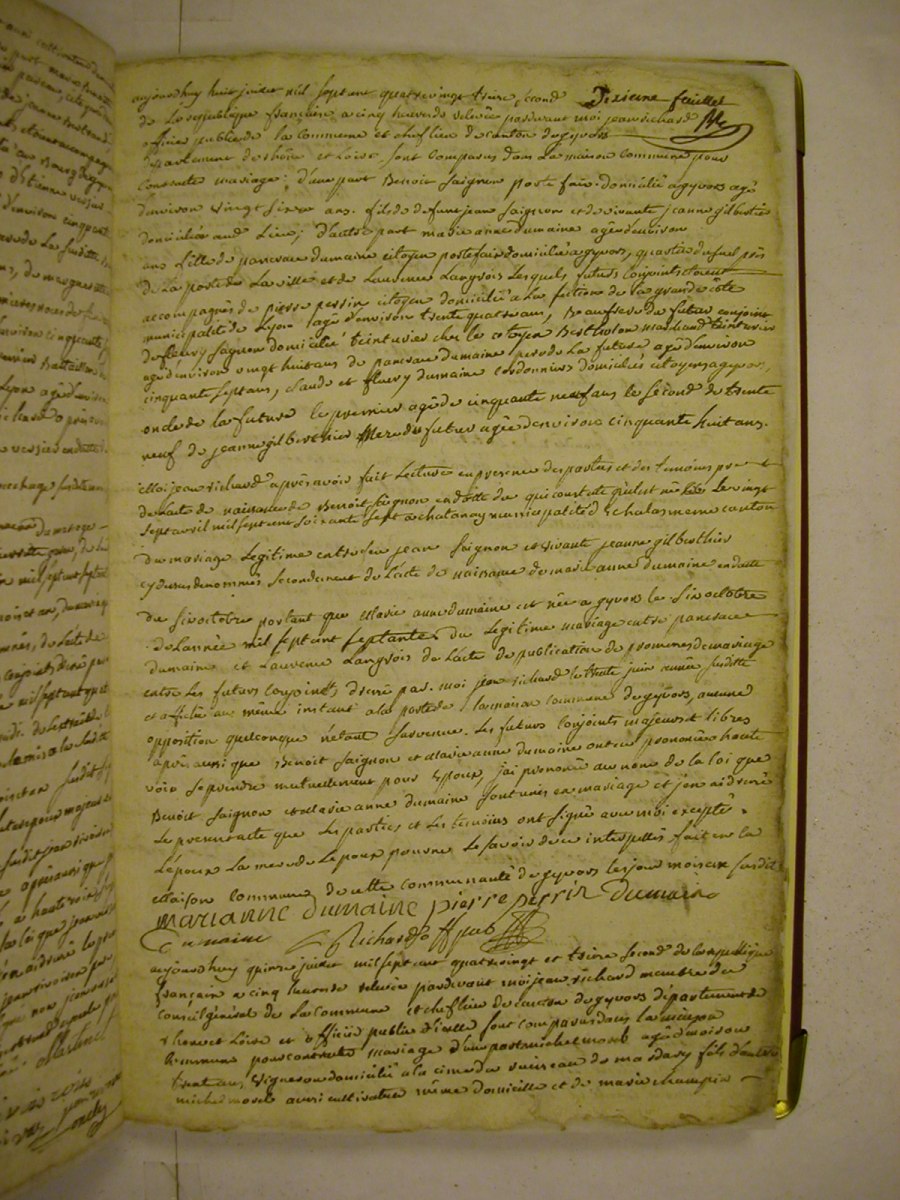 Dixieme feuillet
aujourdhuy huit juiliet mil sept cent quatrevingt treize, second
de La republique françoise a cinq heures de relevée pardevant moi jean richard
officier public de la Commune et chef lieu de canton de gyvors
departement de rhône et Loire, sont Comparus dans La maison Commune pour
Contracter mariage: d'une part Benoit Saignon postefaix domicilié a gyvors agé
d'environ vingt six ans. fils de defunt jean Saignon et de vivante jeanne gilberthier
domiciliée aud. Lieu; d'autre part marie anne dumaine agée d'environ
ans fille de pancrace dumaine citoyen postefaix domicilié a gyvors, quartier du suel près
de La porte de La ville et de Laurence Langlois Lesquels futurs Conjoints etoient
accompagnés de pierre perrin citoyen domicilié a La section de La grande côte
municipalité de Lyon agé d'environ trente quatre ans, Beaufrere du futur conjoint
de fleury Saignon domicilié teinturier chez le citoyen Bertholon marchand teinturier
agé d'environ vingt huit ans de pancrace dumaine pere de La future agé d'environ
cinquante sept ans, claude et fleury dumaine cordonniers domiciliés citoyens a gyvors,
oncle de la future le premier agé de cinquante neuf ans le second de trente
neuf de jeanne gilberthier Mere du futur agée d'environ cinquante huit ans.
Moi jean richard après avoir fait Lecture en presence des parties et des temoins
de L'acte de naissance de Benoit Saignon en datte du qui constate qu'il est né le vingt
sept avril mil sept cent soixante sept a chatanay municipalité d'Echalas meme canton
du mariage Legitime entre feu jean Saignon et vivante jeanne gilberthier
cy dessus denommés secondement de L'acte de naissance de marie anne dumaine en datte
du six octobre portant que Marie anne dumaine est née a gyvors le six octobre
de L'année mil sept cent septante du Legitime mariage entre pancrace
dumaine et Laurence Langlois de L'acte de publication de promesses de mariage
entre Les futurs conjoints dressé par moi jean richard le trente juin année susditte
et affiché au même instant a la porte de la maison commune de gyvors, aucune
opposition quelconque n'etant survenue. Les futurs Conjoints majeurs et libres
après aussi que Benoit Saignon et Marie anne dumaine ont eu prononcé a haute
voix se prendre mutuellement pour Epoux, j'ai prononcé au nom de la loi que
Benoit Saignon et Marie anne dumaine sont unis en mariage et j'en ai dressé
Le present acte que Les parties et Les temoins ont signé avec moi excepté
L'epoux La mere de Lepoux pour ne Le savoir de ce interpellés fait en la
Maison Commune de cette communauté de gyvors les jour mois et an susdit
MARIANNE dumAINE pierre perrin Dumaine
Dumaine Richard off pub
aujourdhuy quinze juiliet mil sept cent quatrevingt et treize second de la republique
françoise a cinq heures de relevée pardevant moi jean richard membre du
Conseil général de La Commune et chef lieu de canton de gyvors departement de
rhone et Loire et officier public d'icelle sont comparus dans la maison
Commune pour contracter mariage d'une part michel morel agé d'environ
trente ans, vigneron domicilié a la cime du ruisseau de mardary fils d'autre
michel morel aussi cultivateur même domicille et de marie champin